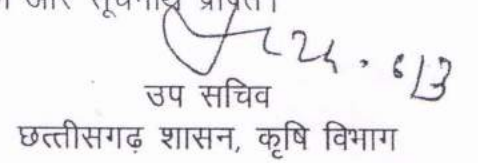 और सूचनार्थ प्रेषित।
उप सचिव
छत्तीसगढ़ शासन, कृषि विभाग